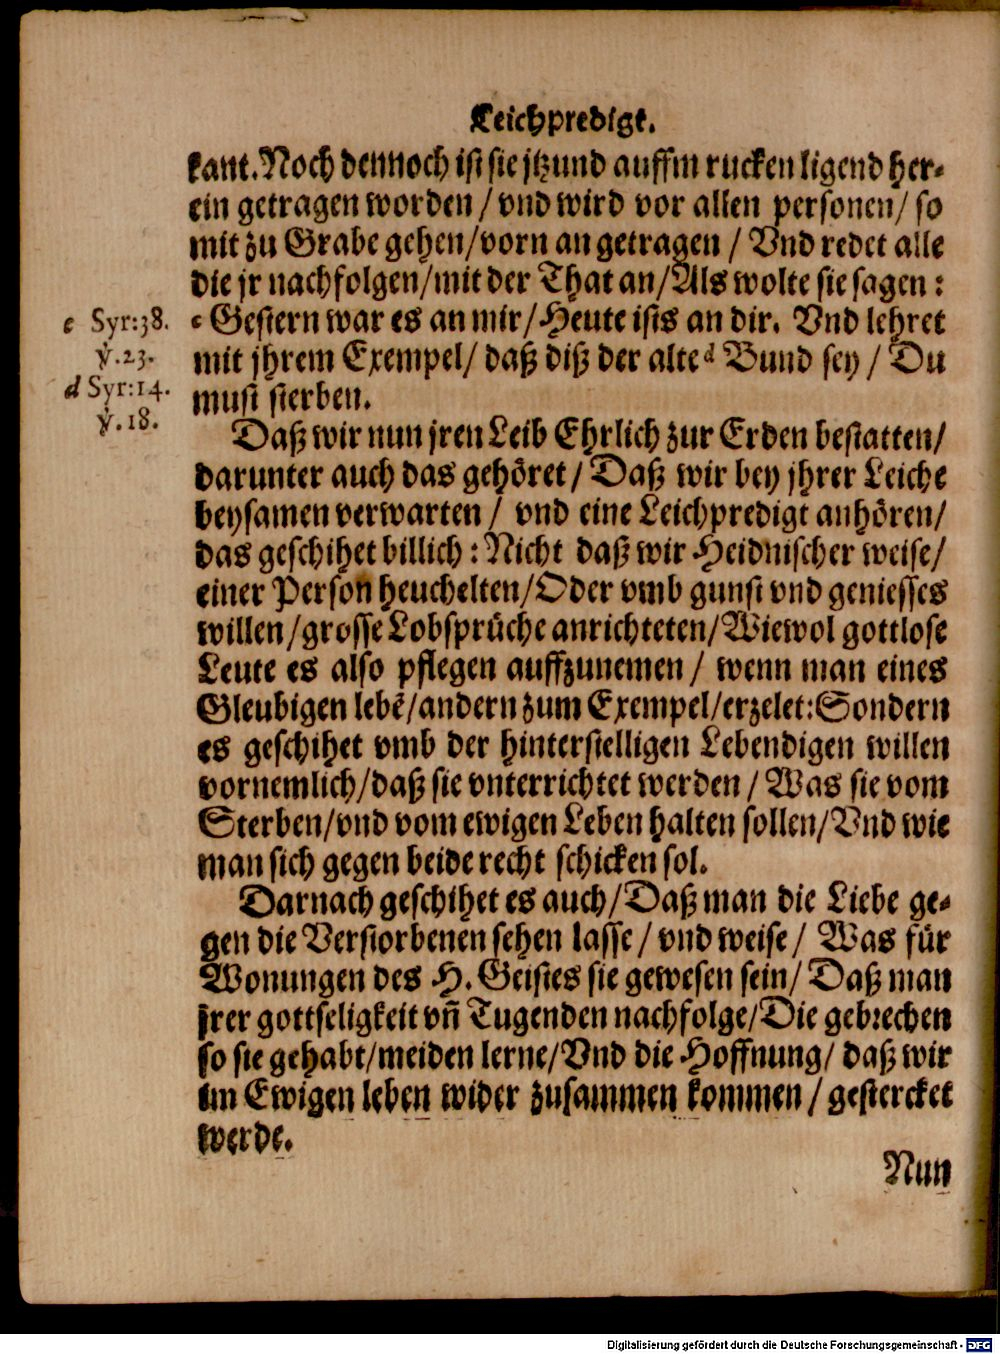 Leichpredigt.
kant. Noch dennoch ist sie jtzund auffm rucken ligend her-
ein getragen worden / vnd wird vor allen personen / so
mit zu Grabe gehen / vorn an getragen / Vnd redet alle
die jr nachfolgen / mit der That an / Als wolte sie sagen:
c Syr:38. c Gestern war es an mir / Heute ists an dir. Vnd lehret
v.23. mit jhrem Exempel / daß diß der alte d Bund sey / Du
d Syr:14. must sterben.
v.18.
Daß wir nun jren Leib Ehrlich zur Erden bestatten /
darunter auch das gehöret / Daß wir bey jhrer Leiche
beysamen verwarten / vnd eine Leichpredigt anhören /
das geschihet billich: Nicht daß wir Heidnischer weise /
einer Person heuchelten / Oder vmb gunst vnd geniesses
willen / grosse Lobsprüche anrichteten / Wiewol gottlose
Leute es also pflegen auffzunemen / wenn man eines
Gleubigen lebē / andern zum Exempel / erzelet: Sondern
es geschihet vmb der hinterstelligen Lebendigen willen
vornemlich / daß sie vnterrichtet werden / Was sie vom
Sterben / vnd vom ewigen Leben halten sollen / Vnd wie
man sich gegen beide recht schicken sol.
Darnach geschihet es auch / Daß man die Liebe ge-
gen die Verstorbenen sehen lasse / vnd weise / Was für
Wonungen des H. Geistes sie gewesen sein / Daß man
jrer gottseligkeit vñ Tugenden nachfolge / Die gebrechen
so sie gehabt / meiden lerne / Vnd die Hoffnung / daß wir
im Ewigen leben wider zusammen kommen / gestercket
werde.
Nun
Digitalisierung gefördert durch die Deutsche Forschungsgemeinschaft - DFG